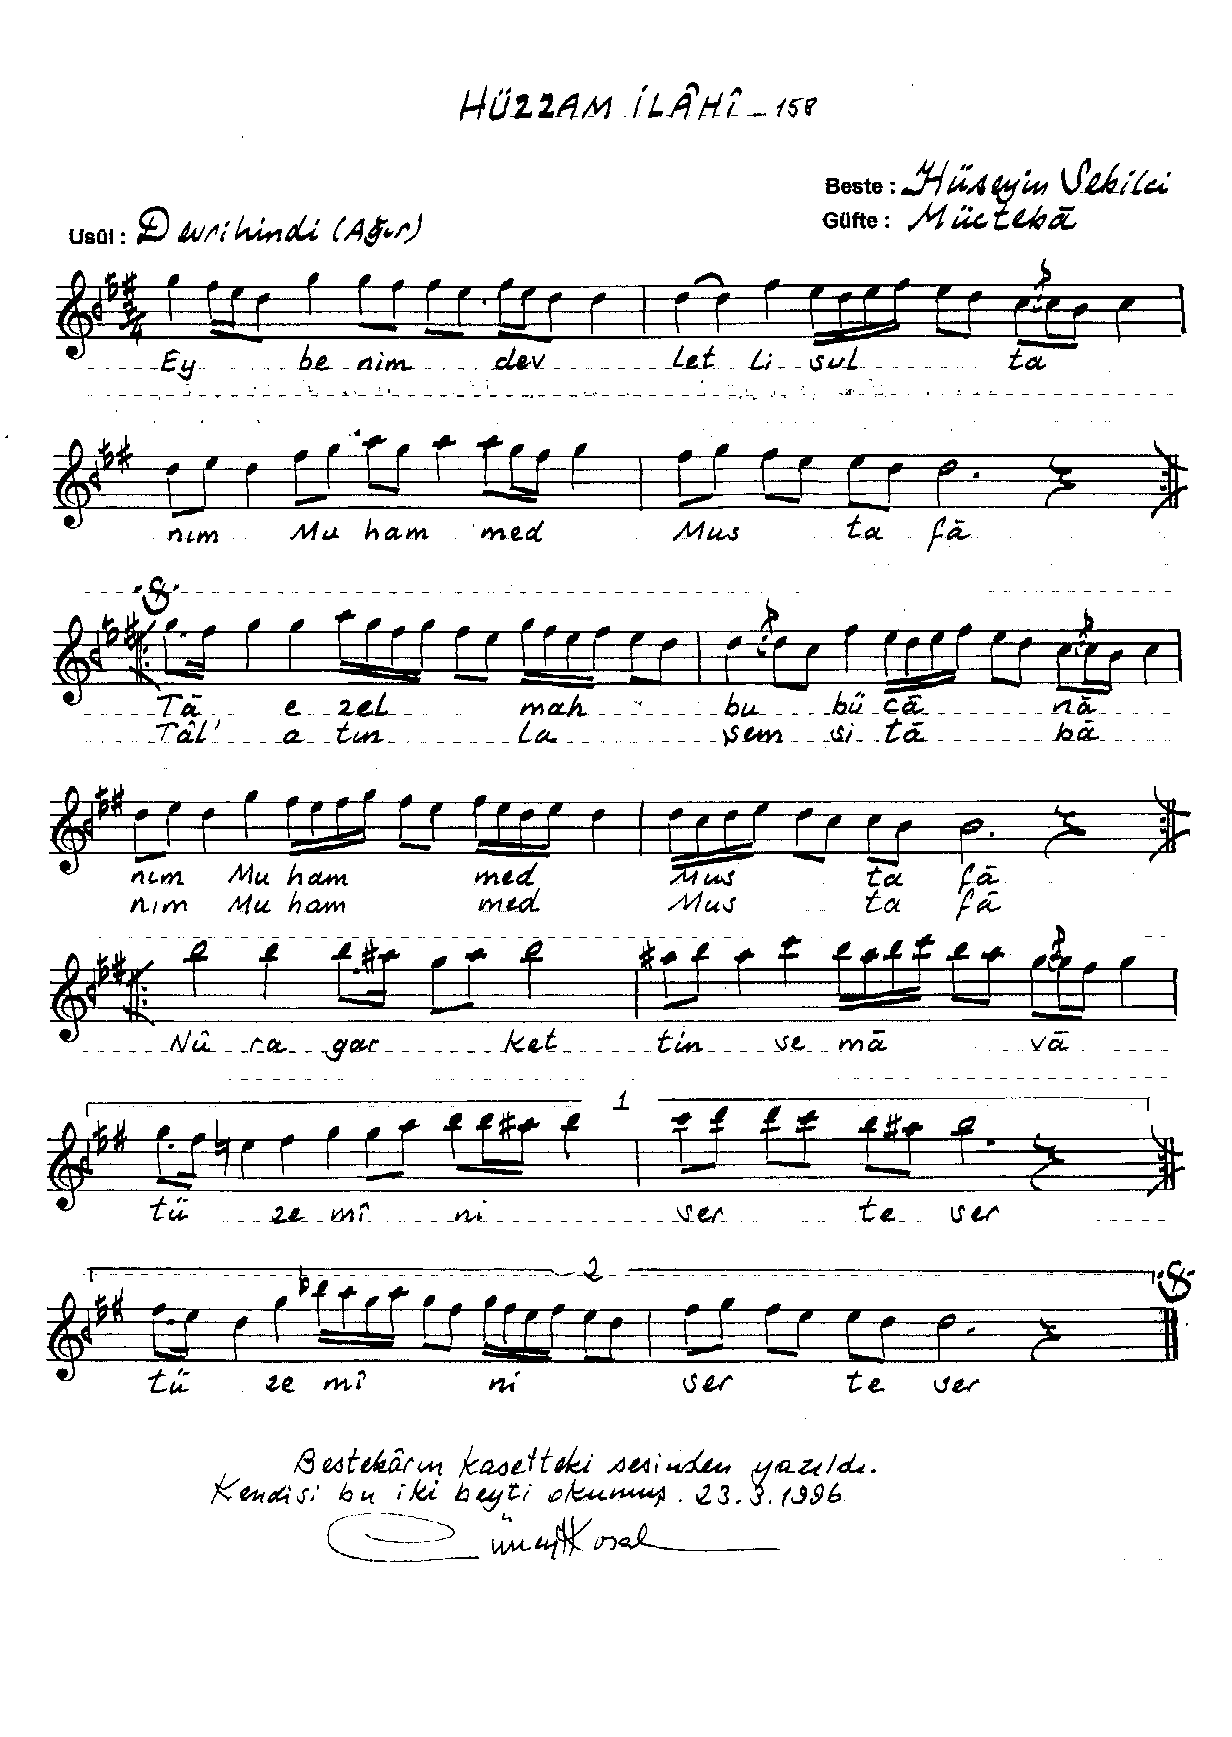 HÜZZAM İLÂHÎ - 158
Beste : Hüseyin Sebilci
Güfte : Müctebā
Usûl : Devrihindi (Ağır)
Ey be nim dev let li sul ta
nım Mu ham med Mus ta fā
Tā e zel mah bu bü câ nā
Tâl' a tın La şem si tā bā
nım Mu ham med Mus ta fā
nım Mu ham med Mus ta fā
Nû ra gar ket tin se mā vā
1
tü ze mî ni ser te ser
2
tü ze mî ni ser te ser
Bestekârın kasetteki sesinden yazıldı.
Kendisi bu iki beyti okumuş. 23.3.1996
Cüneyt Kosal